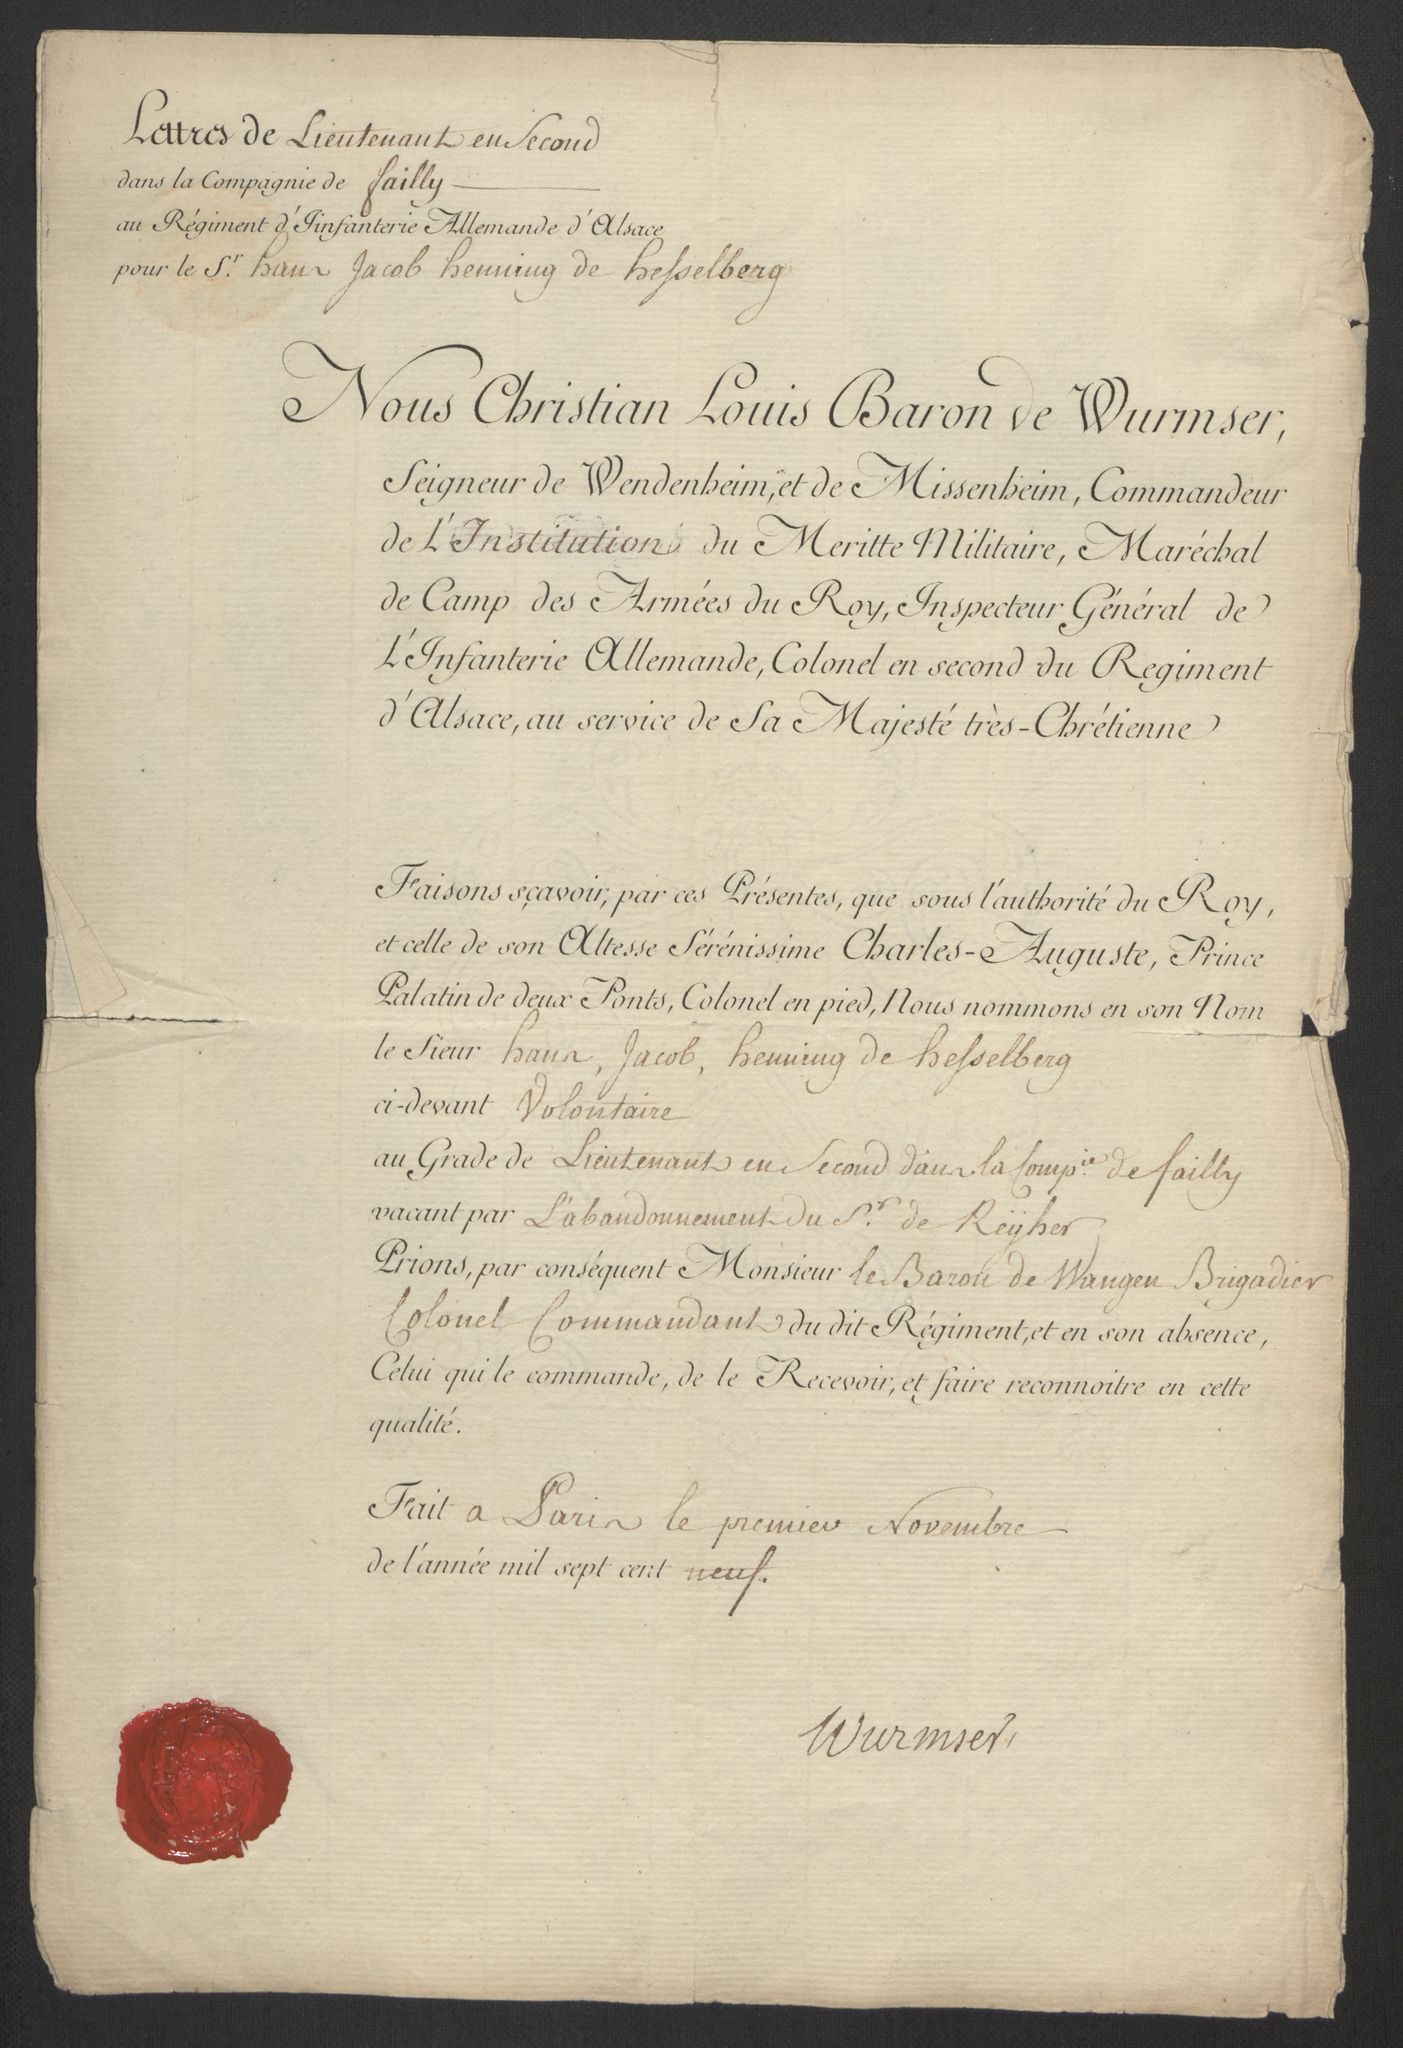 Lettres de Lieutenant en Second
dans la Compagnie de failly
au Régiment d'Jinfanterie Allemande d'Alsace
pour le S.r hans Jacob henning de hesselberg
Nous Christian Louis Baron de Wurmser,
Seigneur de Wendenheim, et de Missenheim, Commandeur
de L'Institution du Meritte Militaire, Maréchal
de Camp des Armées du Roy, Inspecteur Général de
L'Infanterie Allemande, Colonel en second du Regiment
d'Alsace, au service de Sa Majesté très-Chrétienne
Faisons sçavoir, par ces Présentes, que sous l'authorité du Roy,
et celle de son Altesse Sérénissime Charles-Auguste, Prince
Palatin de deux Ponts, Colonel en pied, Nous nommons en son Nom
le Sieur hans, Jacob, henning de hesselberg
ci-devant Volontaire
au Grade de Lieutenant en Second dans la Comp.ie de failly
vacant par L'abandonnement du S.r de Reÿher
Prions, par conséquent Monsieur le Baron de Wangen Brigadier
Colonel Commandant du dit Régiment, et en son absence,
Celui qui le commande, de le Recevoir, et faire reconnoitre en cette
qualité.
Fait a Paris le premier Novembre
de l'année mil sept cent neuf.
Wurmser